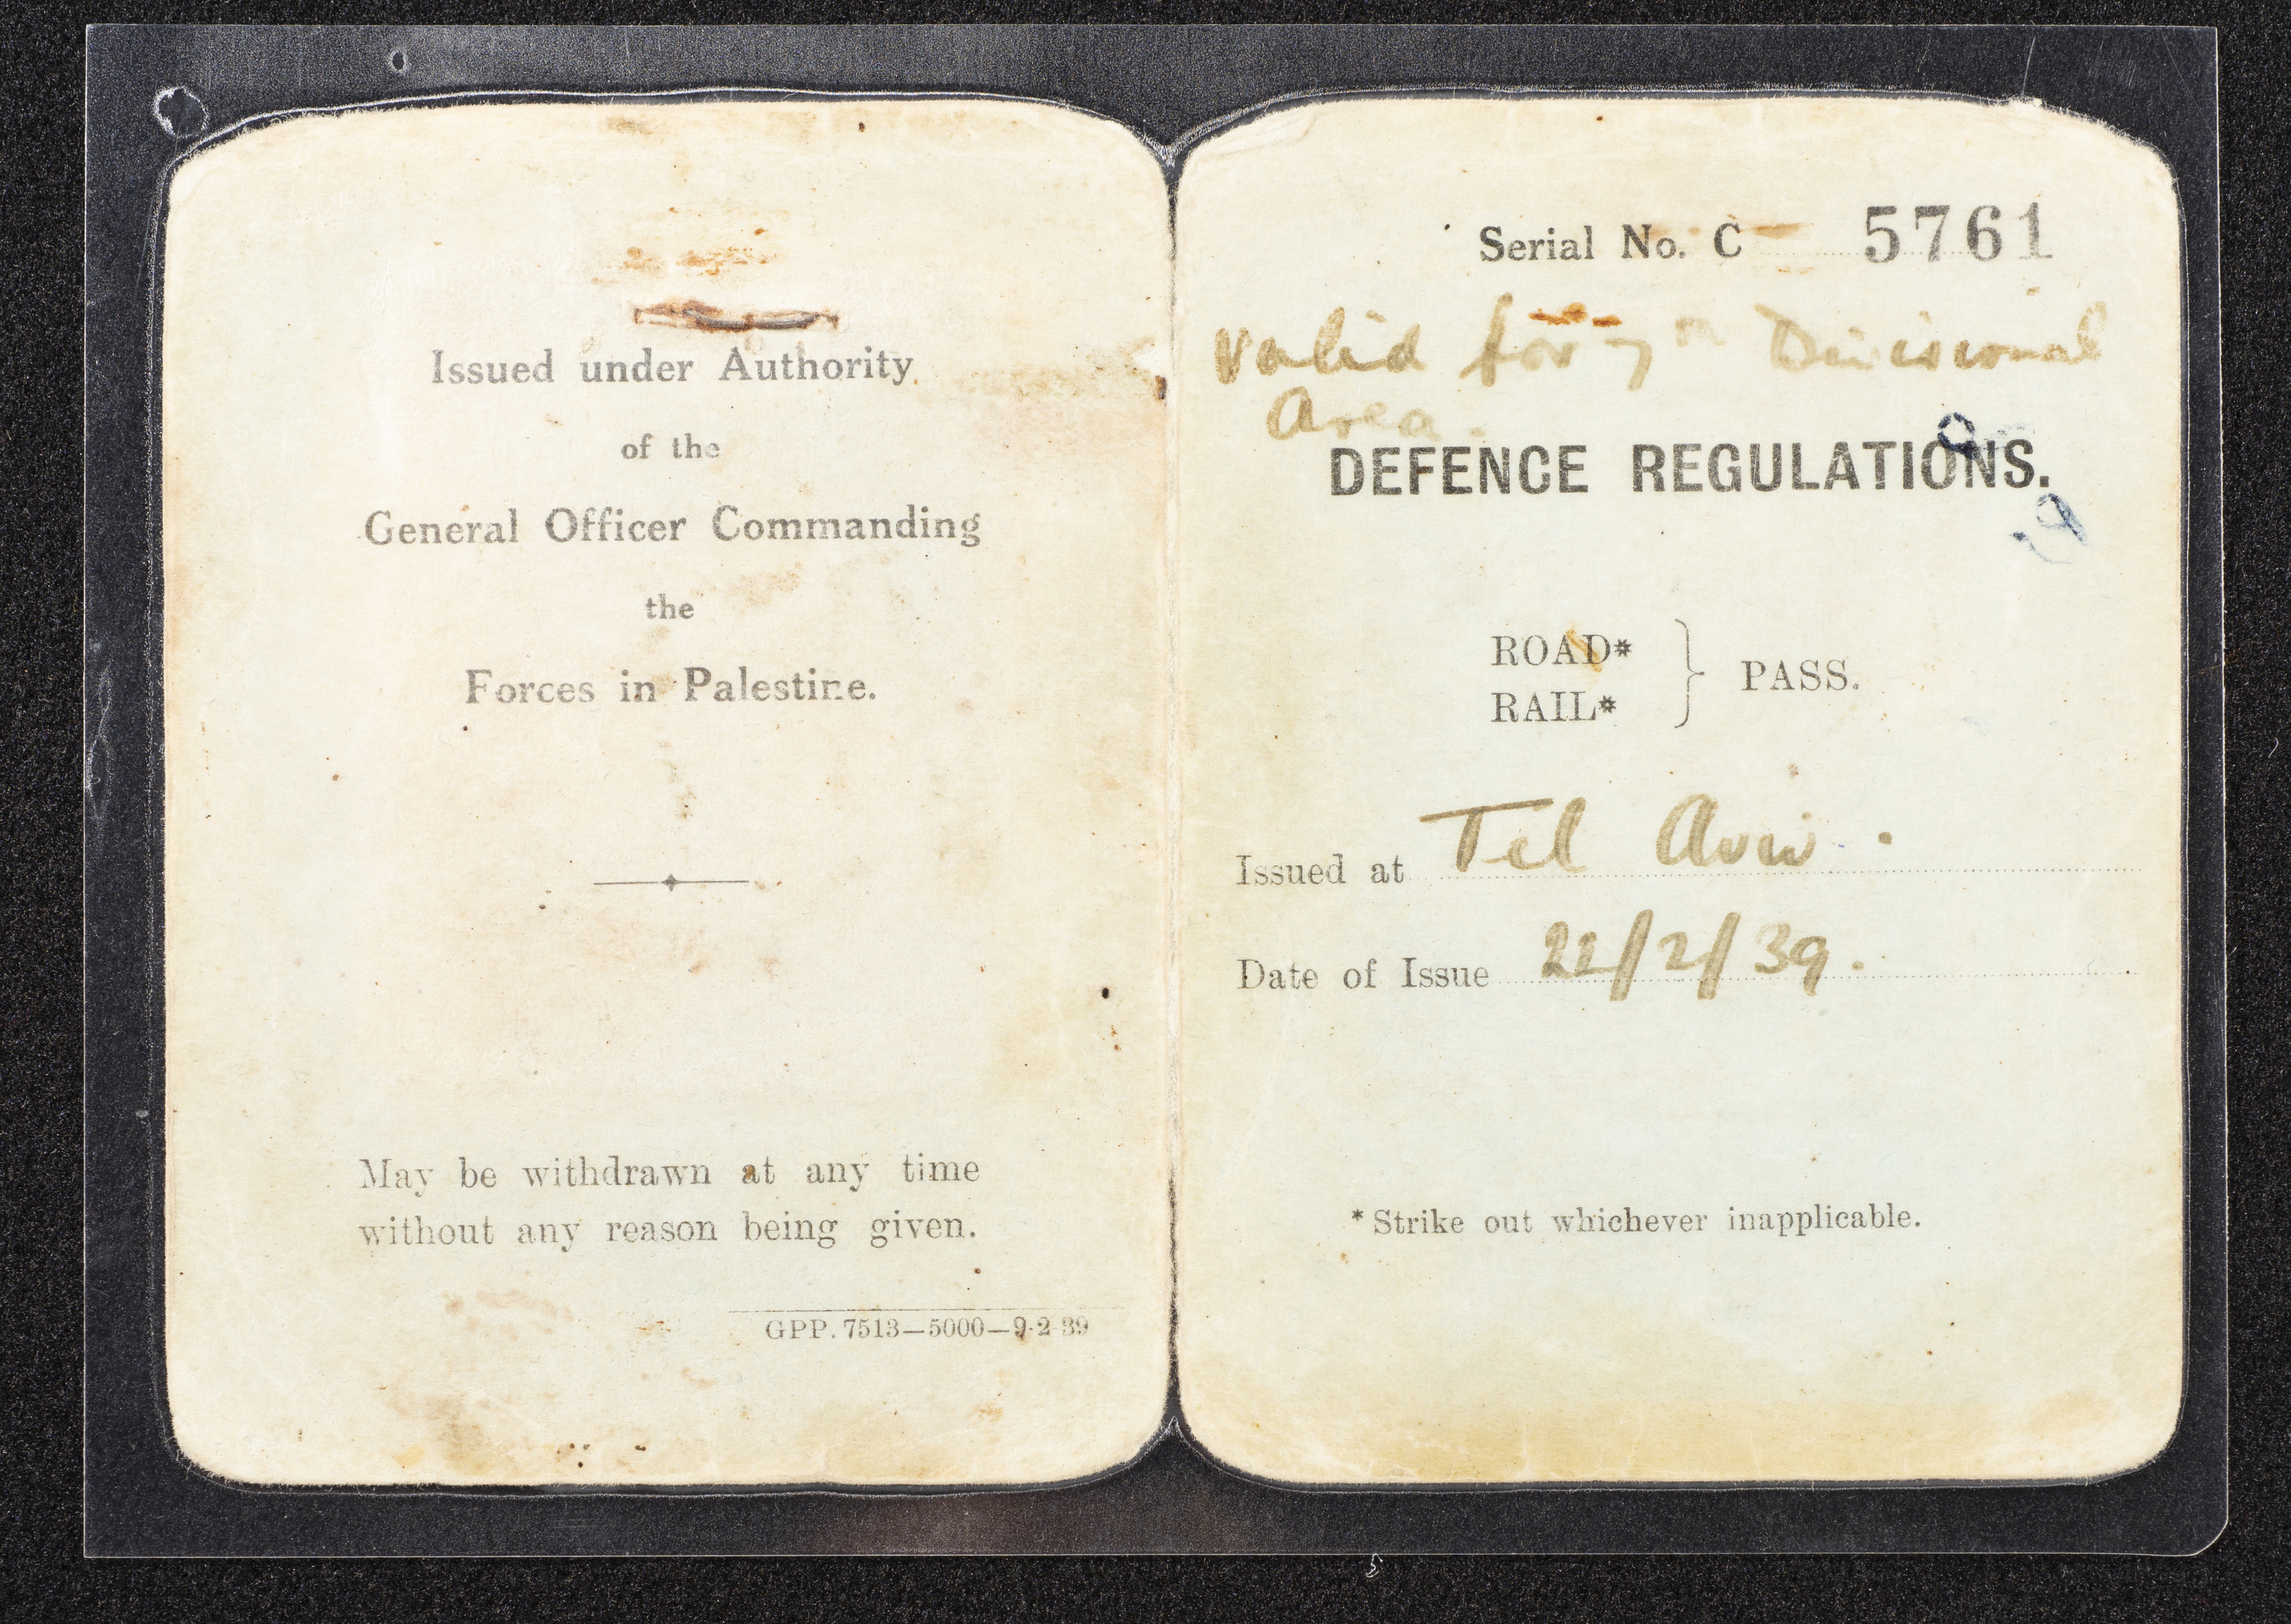 Issued under Authority
of the
General Officer Commanding
the
Forces in Palestine.
May be withdrawn at any time
without any reason being given.
GPP. 7513—5000—9-2-39
Serial No. C 5761
Valid for 7th Divisional
Area.
DEFENCE REGULATIONS.
ROAD*
RAIL*
} PASS.
Issued at Tel Aviv.
Date of Issue 22/2/39.
* Strike out whichever inapplicable.